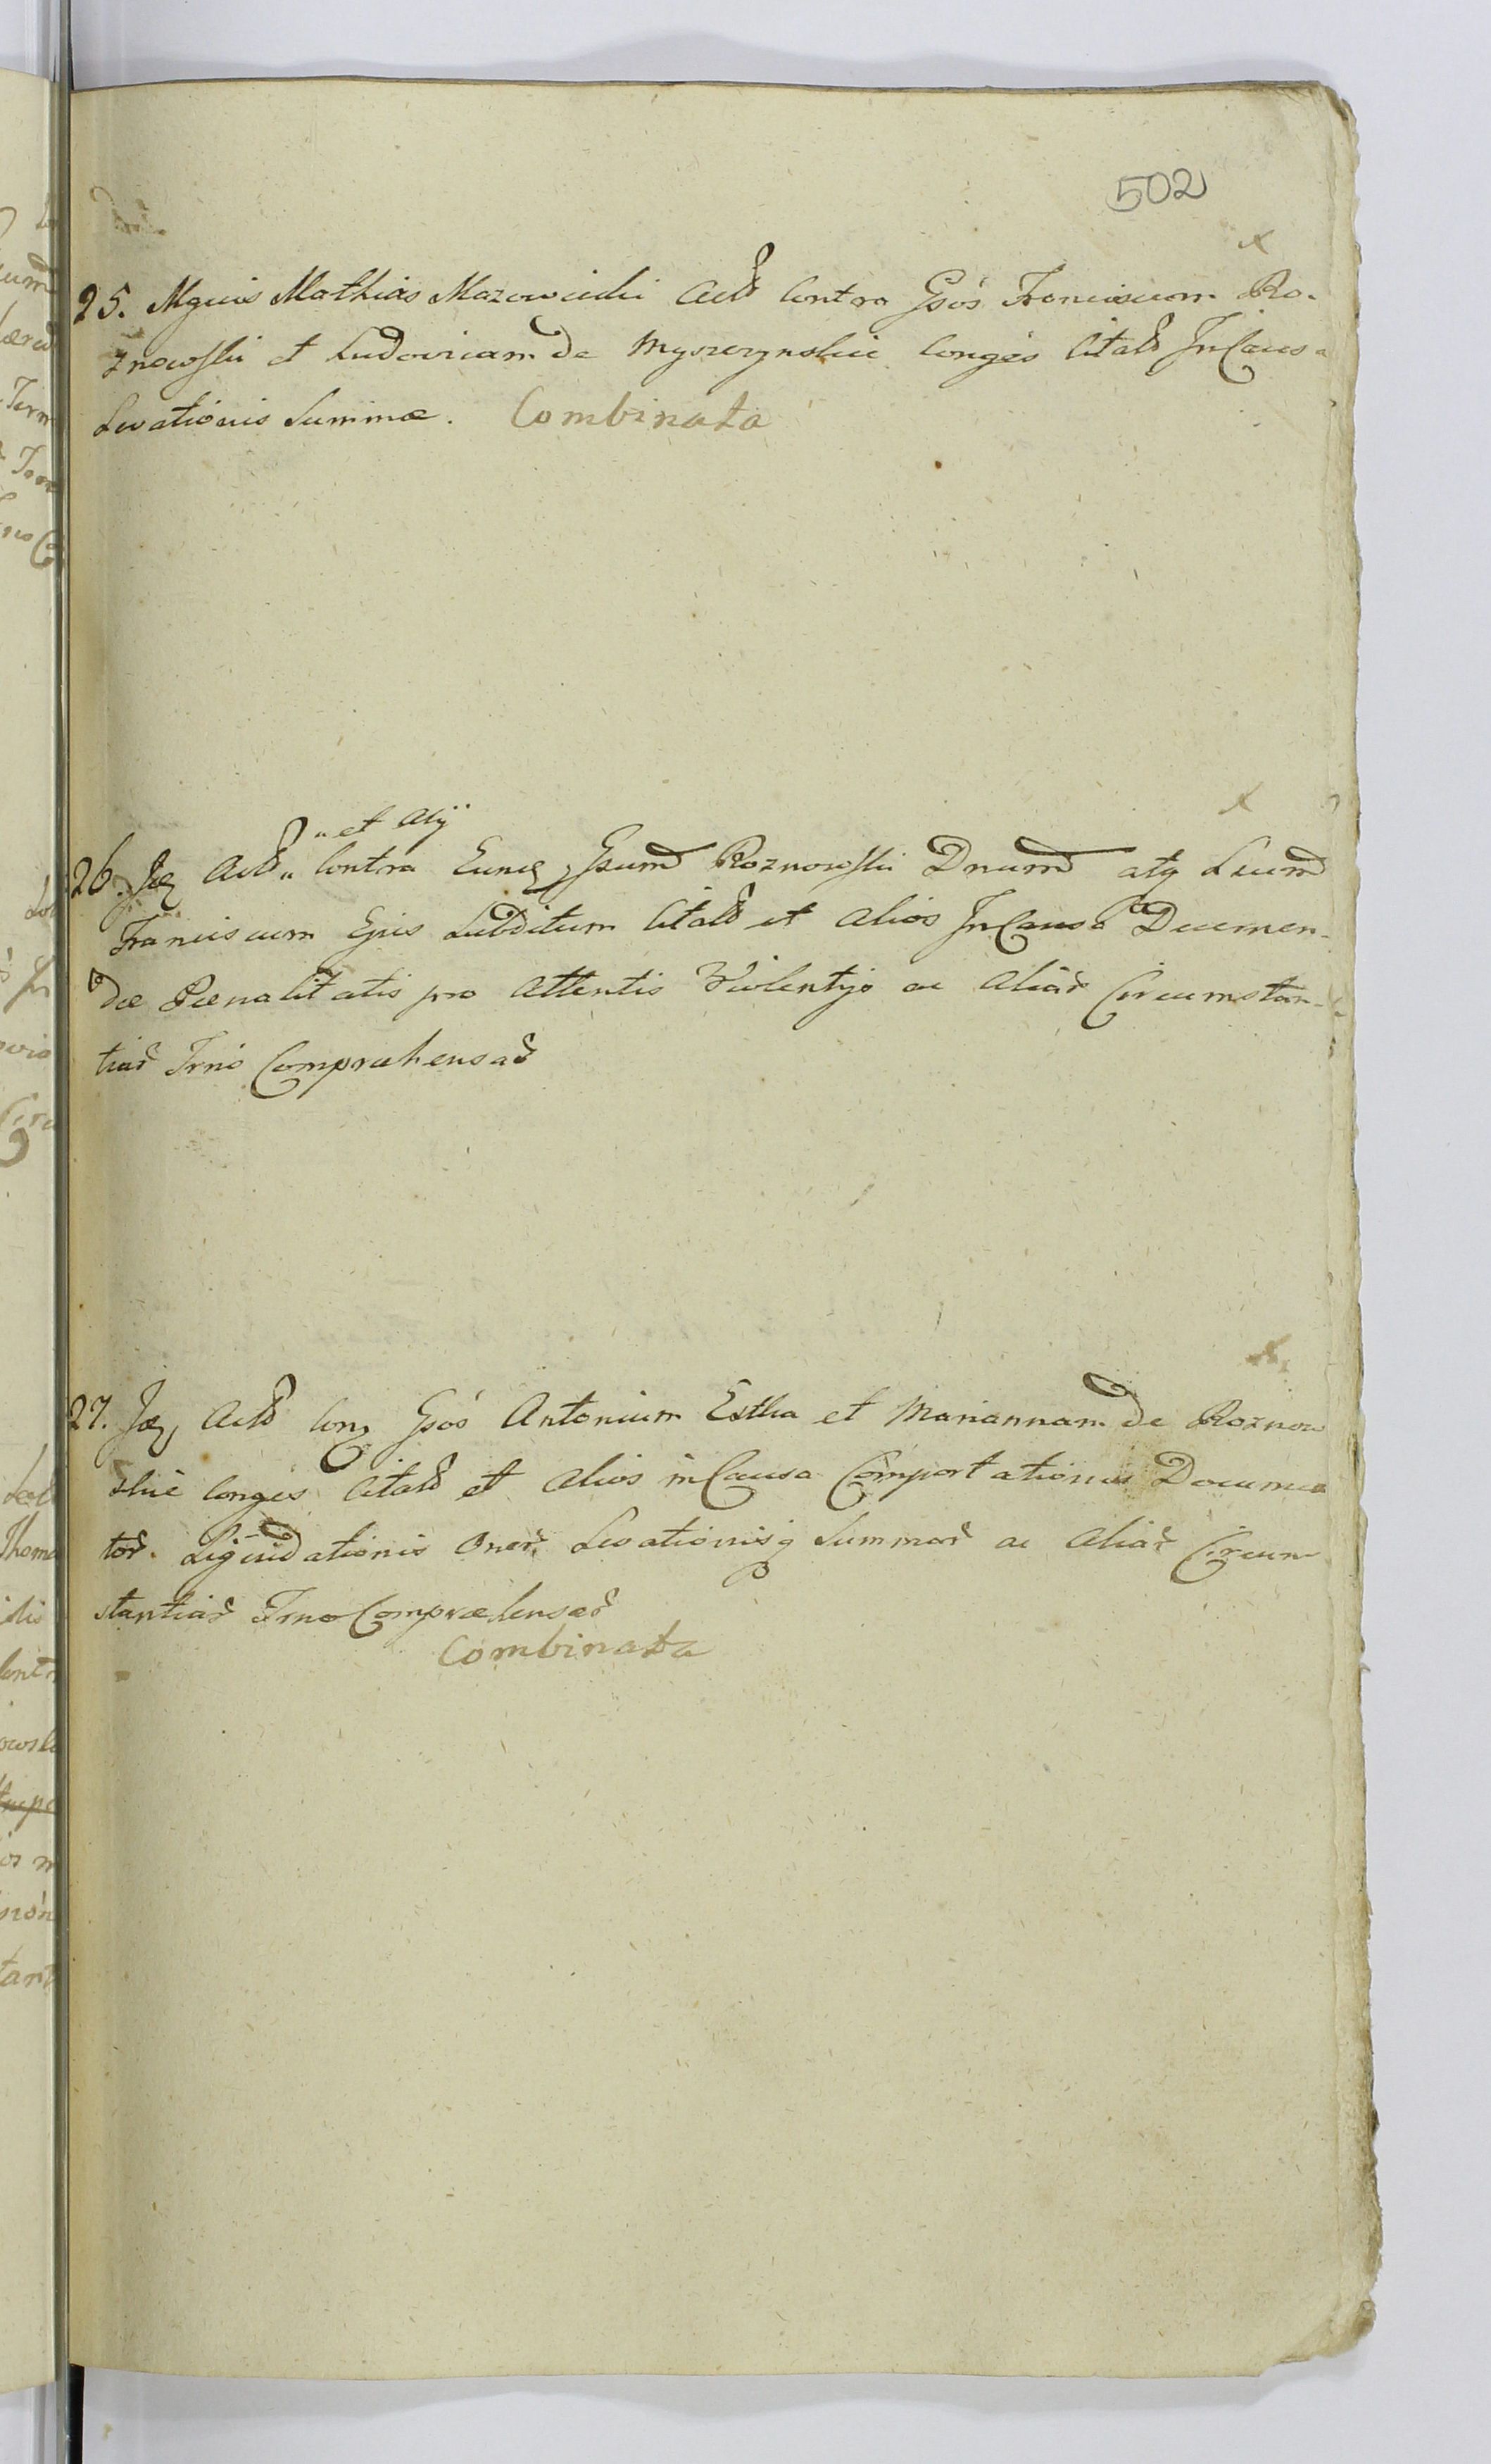 502
25. Mgcus Mathias Mazowiecki Actor Contra Gsos Franciscum Ro-
znowski et Ludovicam de Myszczynskie Conges Citatos In Causa
Levationis Summæ. Combinata
et Alij
26. Idem Actor Contra Eundem Gsum Roznowski Dnum atq
Franciscum Ejus Subditum Citatos et Alios In Causa Decernen-
dæ Pœnalitatis pro Attentis Violentijs ac Aliar Circumstan-
tiar Trno Compræhensar
27. Idem Actor Con Gsos Antonium Estka et Mariannam de Roznow
skie Conges Citatos et Alios in Causa Comportationis Documen
tor. Liquidationis Oner Levationisq Summar ac Aliar Circum
stantiar Trno Compræhensar
Combinata